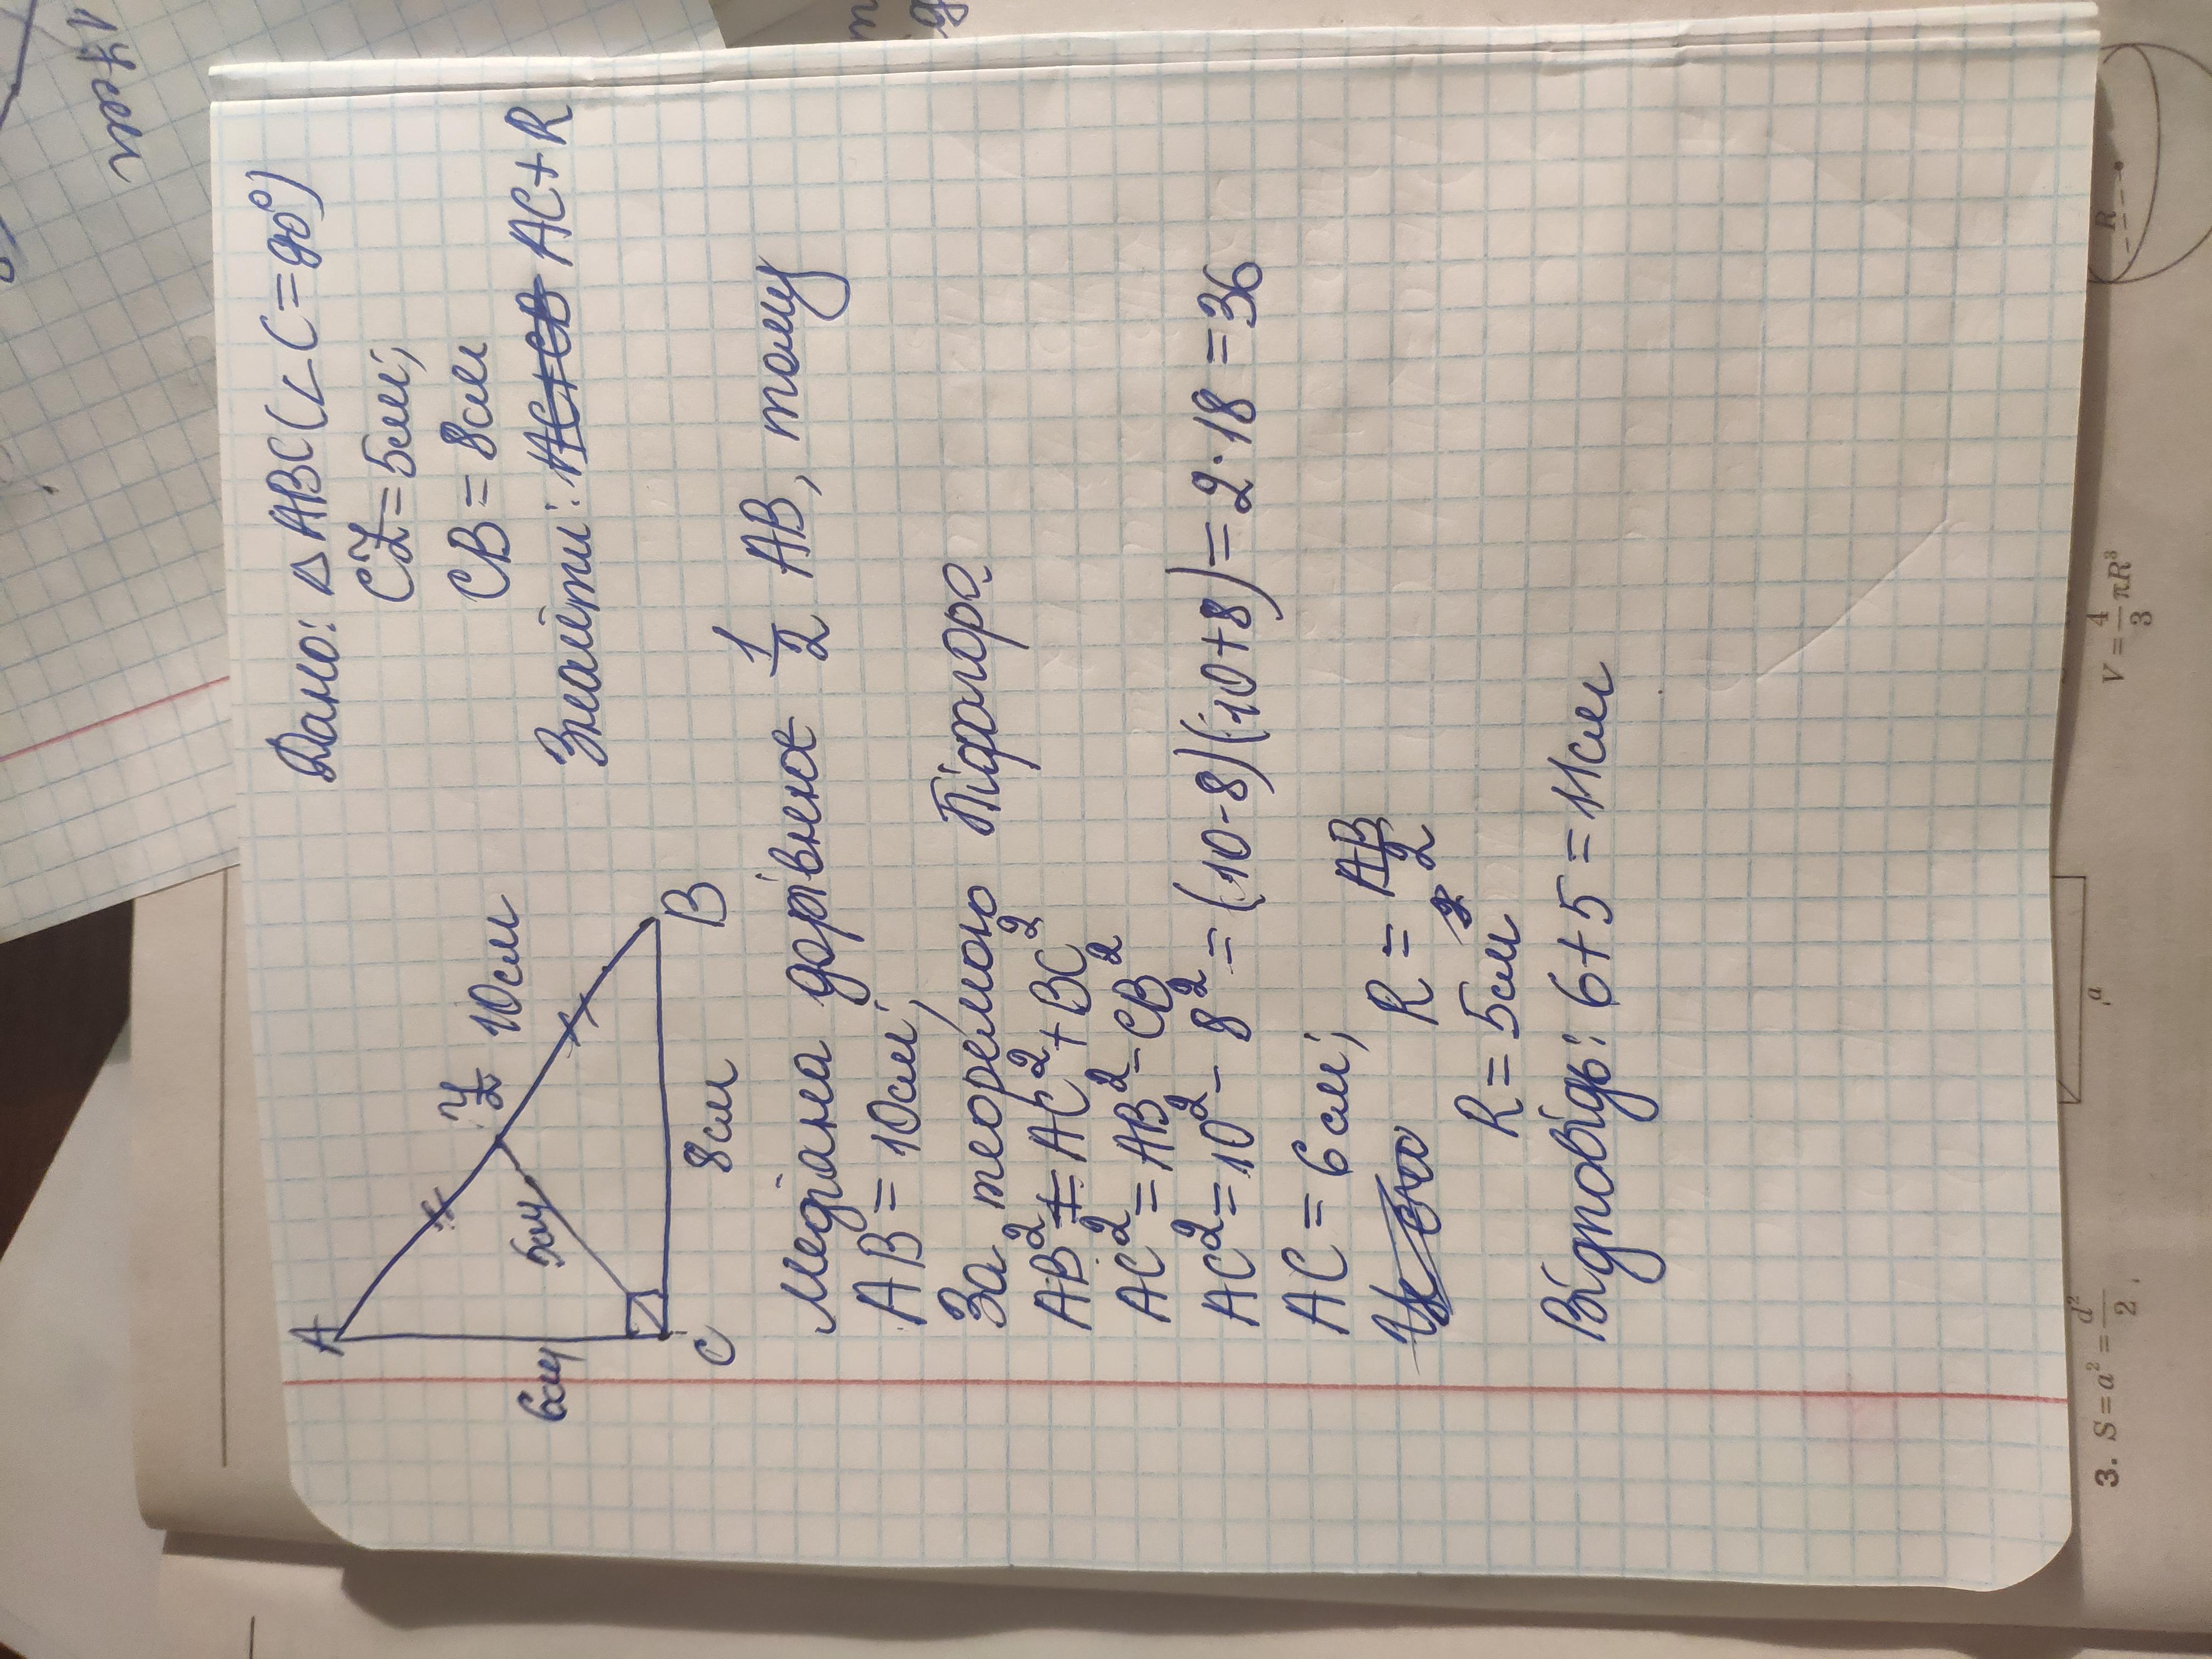 Дано: △ ABC (∠C=90°)
CZ=5см;
CB=8см
Знайти: AC+CB AC+R
A
Z
10см
5см
6см
8см
B
C
Медіана дорівнює 1/2 AB, тому
AB=10см;
За теоремою Піфагора
AB²=AC²+BC²
AC²=AB²-CB²
AC²=10²-8²=(10-8)(10+8)=2·18=36
AC=6см; R=AB/2
R=5см
Відповідь: 6+5=11см
17см
3. S=a²=d²/2,
a
V=4/3πR³
R